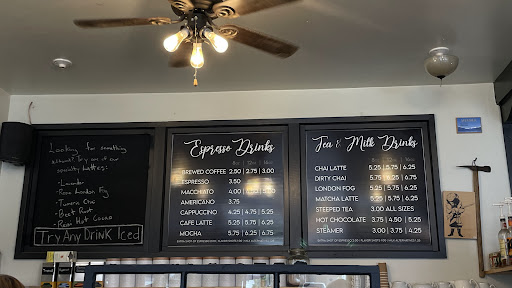 Looking for something
different? Try one of our
specialty lattes:
- Lavender
- Rose London Fog
- Turmeric Chai
- Beet Root
- Raw Hot Cacao
Try Any Drink Iced
Espresso Drinks
8oz | 12oz | 16oz
BREWED COFFEE 2.50 | 2.75 | 3.00
ESPRESSO 3.50
MACCHIATO 4.00
AMERICANO 3.75
CAPPUCCINO 4.25 | 4.75 | 5.25
CAFE LATTE 5.25 | 5.75 | 6.25
MOCHA 5.75 | 6.25 | 6.75
Tea & Milk Drinks
8oz | 12oz | 16oz
CHAI LATTE 5.25 | 5.75 | 6.25
DIRTY CHAI 5.75 | 6.25 | 6.75
LONDON FOG 5.25 | 5.75 | 6.25
MATCHA LATTE 5.25 | 5.75 | 6.25
STEEPED TEA 3.00 ALL SIZES
HOT CHOCOLATE 3.75 | 4.50 | 5.25
STEAMER 3.00 | 3.75 | 4.25